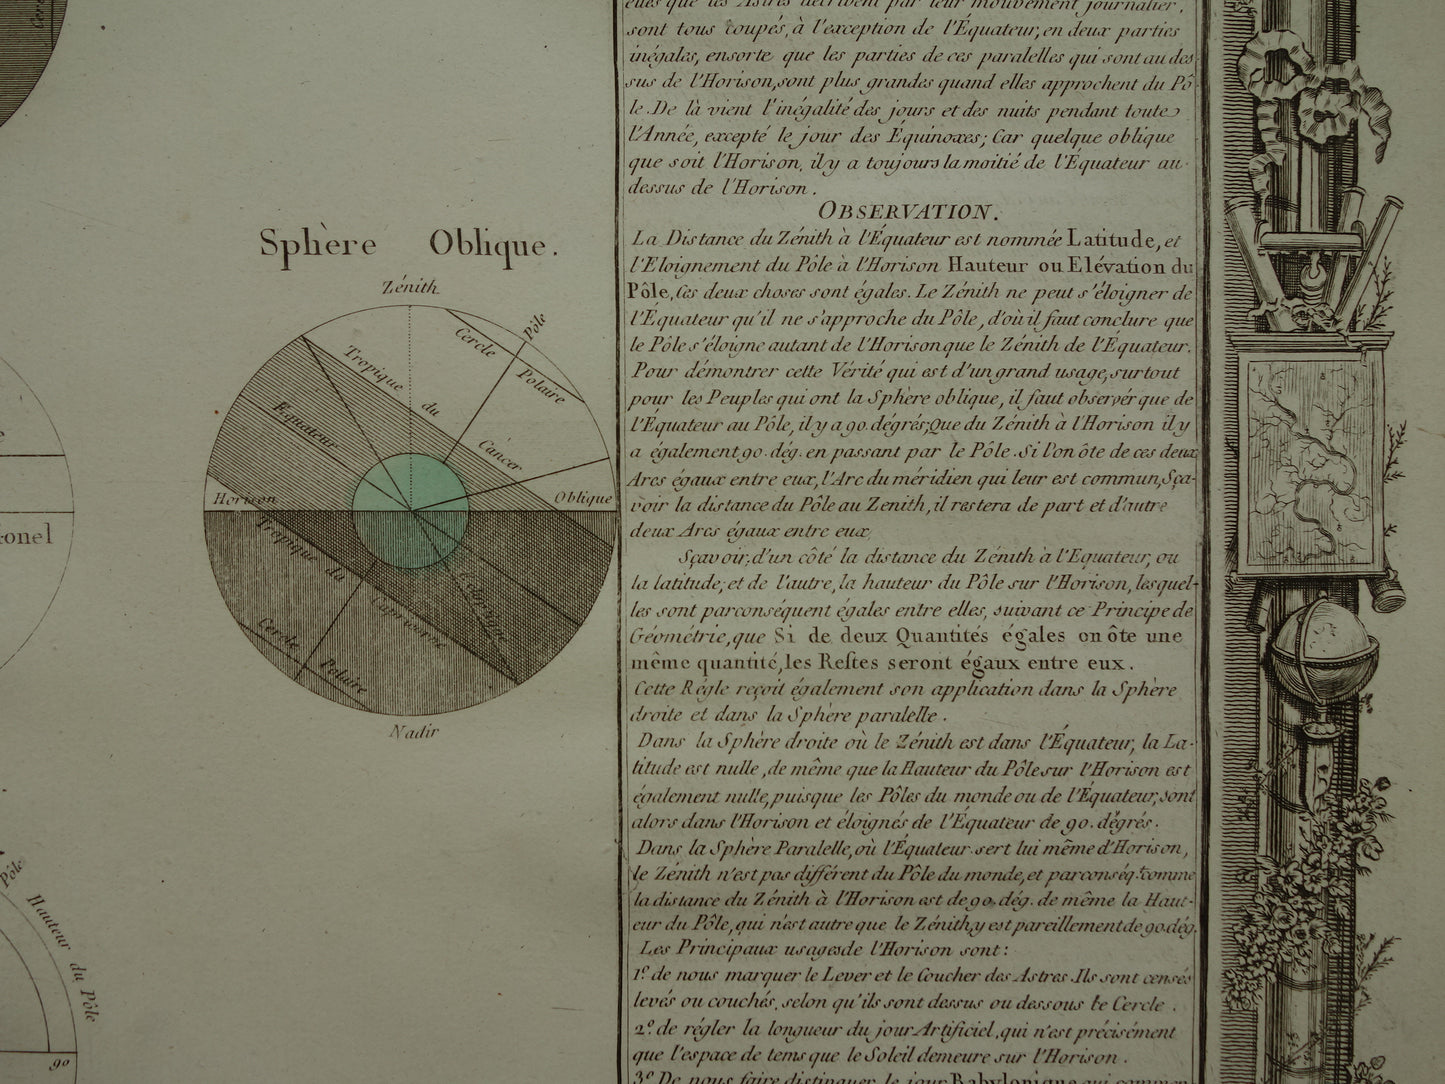 elles que les Astres décrivent par leur mouvement journalier,
sont tous coupés, à l'exception de l'Équateur, en deux parties
inégales, ensorte que les parties de ces paralelles qui sont au des
sus de l'Horison, sont plus grandes quand elles approchent du Pô
le. De là vient l'inégalité des jours et des nuits pendant toute
l'Année, excepté le jour des Équinoxes; Car quelque oblique
que soit l'Horison, il y a toujours la moitié de l'Équateur au-
dessus de l'Horison.
OBSERVATION.
La Distance du Zénith à l'Équateur est nommée Latitude, et
l'Eloignement du Pôle à l'Horison Hauteur ou Elévation du
Pôle, Ces deux choses sont égales. Le Zénith ne peut s'éloigner de
l'Équateur qu'il ne s'approche du Pôle, d'où il faut conclure que
le Pôle s'éloigne autant de l'Horison que le Zénith de l'Équateur.
Pour démontrer cette Vérité qui est d'un grand usage, surtout
pour les Peuples qui ont la Sphère oblique, il faut observér que de
l'Équateur au Pôle, il y a 90. dégrés; Que du Zénith à l'Horison il y
a également 90. dég. en passant par le Pôle. Si l'on ôte de ces deux
Arcs égaux entre eux, l'Arc du méridien qui leur est commun, Sça-
voir la distance du Pôle au Zenith, il restera de part et d'autre
deux Arcs égaux entre eux,
Sçavoir, d'un côté la distance du Zénith à l'Equateur, ou
la latitude; et de l'autre, la hauteur du Pôle sur l'Horison, lesquel-
les sont parconséquent égales entre elles, suivant ce Principe de
Géométrie, que Si de deux Quantités égales on ôte une
même quantité, les Restes seront égaux entre eux.
Cette Régle reçoit également son application dans la Sphère
droite et dans la Sphère paralelle.
Dans la Sphère droite où le Zénith est dans l'Équateur, la La-
titude est nulle, de même que la Hauteur du Pôle sur l'Horison est
également nulle, puisque les Pôles du monde ou de l'Equateur, sont
alors dans l'Horison et éloignés de l'Équateur de 90. dégrés.
Dans la Sphère Paralelle, où l'Équateur sert lui même d'Horison,
le Zénith n'est pas différent du Pôle du monde, et parconséq.t comme
la distance du Zénith à l'Horison est de 90. dég. de même la Haut-
eur du Pôle, qui n'est autre que le Zénith, y est pareillement de 90. dég.
Les Principaux usages de l'Horison sont:
1.º de nous marquer le Lever et le Coucher des Astres. Ils sont censés
levés ou couchés, selon qu'ils sont dessus ou dessous le Cercle.
2.º de régler la longueur du jour Artificiel, qui n'est précisément
que l'espace de tems que le Soleil demeure sur l'Horison.
3.º De nous faire distinguer le jour Babylonique qui commen
Sphère Oblique.
Zénith
Cercle Polaire
Pôle
Tropique du Cancer
Equateur
Horison Oblique
Tropique du Capricorne
Ecliptique
Cercle Polaire
Nadir
Pôle
Hauteur du Pôle
90